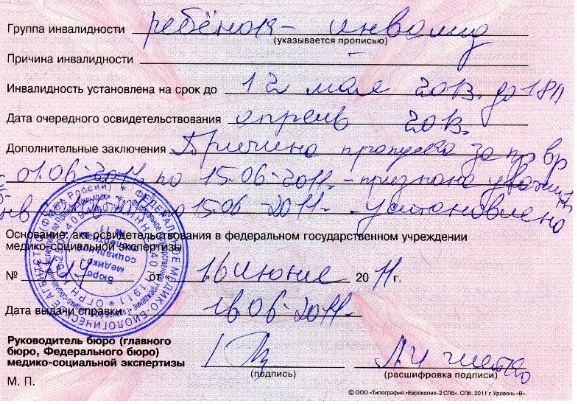 Группа инвалидности ребёнок - инвалид
(указывается прописью)
Причина инвалидности
Инвалидность установлена на срок до 12 мая 2013. до 18 л
Дата очередного освидетельствования апрель 2013.
Дополнительные заключения Причина пропуска за пр вр
01.06-2011 по 15-06-2011 - признана уважит
по 15 06-2011 - установлено
Основание: акт освидетельствования в федеральном государственном учреждении
медико-социальной экспертизы
№ от 16 июне 2011 г.
Дата выдачи справки 16.06-2011.
Руководитель бюро (главного
бюро, Федерального бюро)
медико-социальной экспертизы
(подпись) (расшифровка подписи)
М. П.
© ООО «Типография «Еврокопия-2 СПб». СПб. 2011 г. Уровень «В».